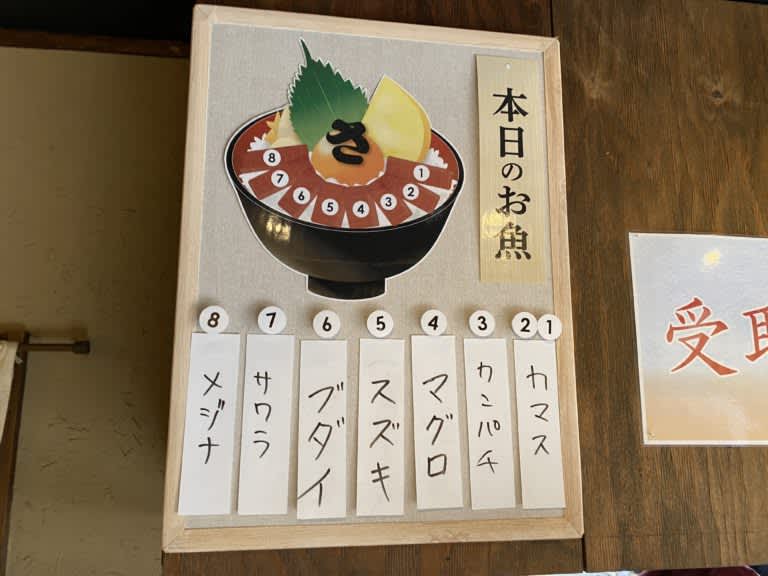 本日のお魚
さ
8
7
6
5
4
3
2
1
①
②
カマス
③
カンパチ
④
マグロ
⑤
スズキ
⑥
ブダイ
⑦
サワラ
⑧
メジナ
受取